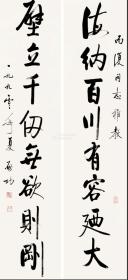 丙厦同志雅教
海纳百川有容廼大
壁立千仞无欲则刚
一九八零年夏 启功